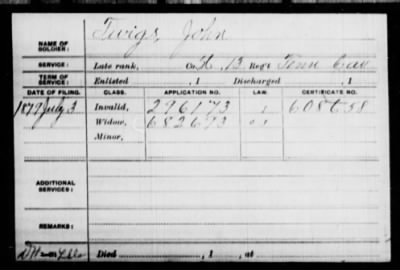 NAME OF SOLDIER: Twigs, John
SERVICE: Late rank, Co. H, 13 Reg't Tenn Cav
TERM OF SERVICE: Enlisted , 1 Discharged , 1
DATE OF FILING. CLASS. APPLICATION NO. LAW. CERTIFICATE NO.
1879 July 3 Invalid, 296173 1 608658
Widow, 682673
Minor,
ADDITIONAL SERVICES:
REMARKS:
Died , 1 , at